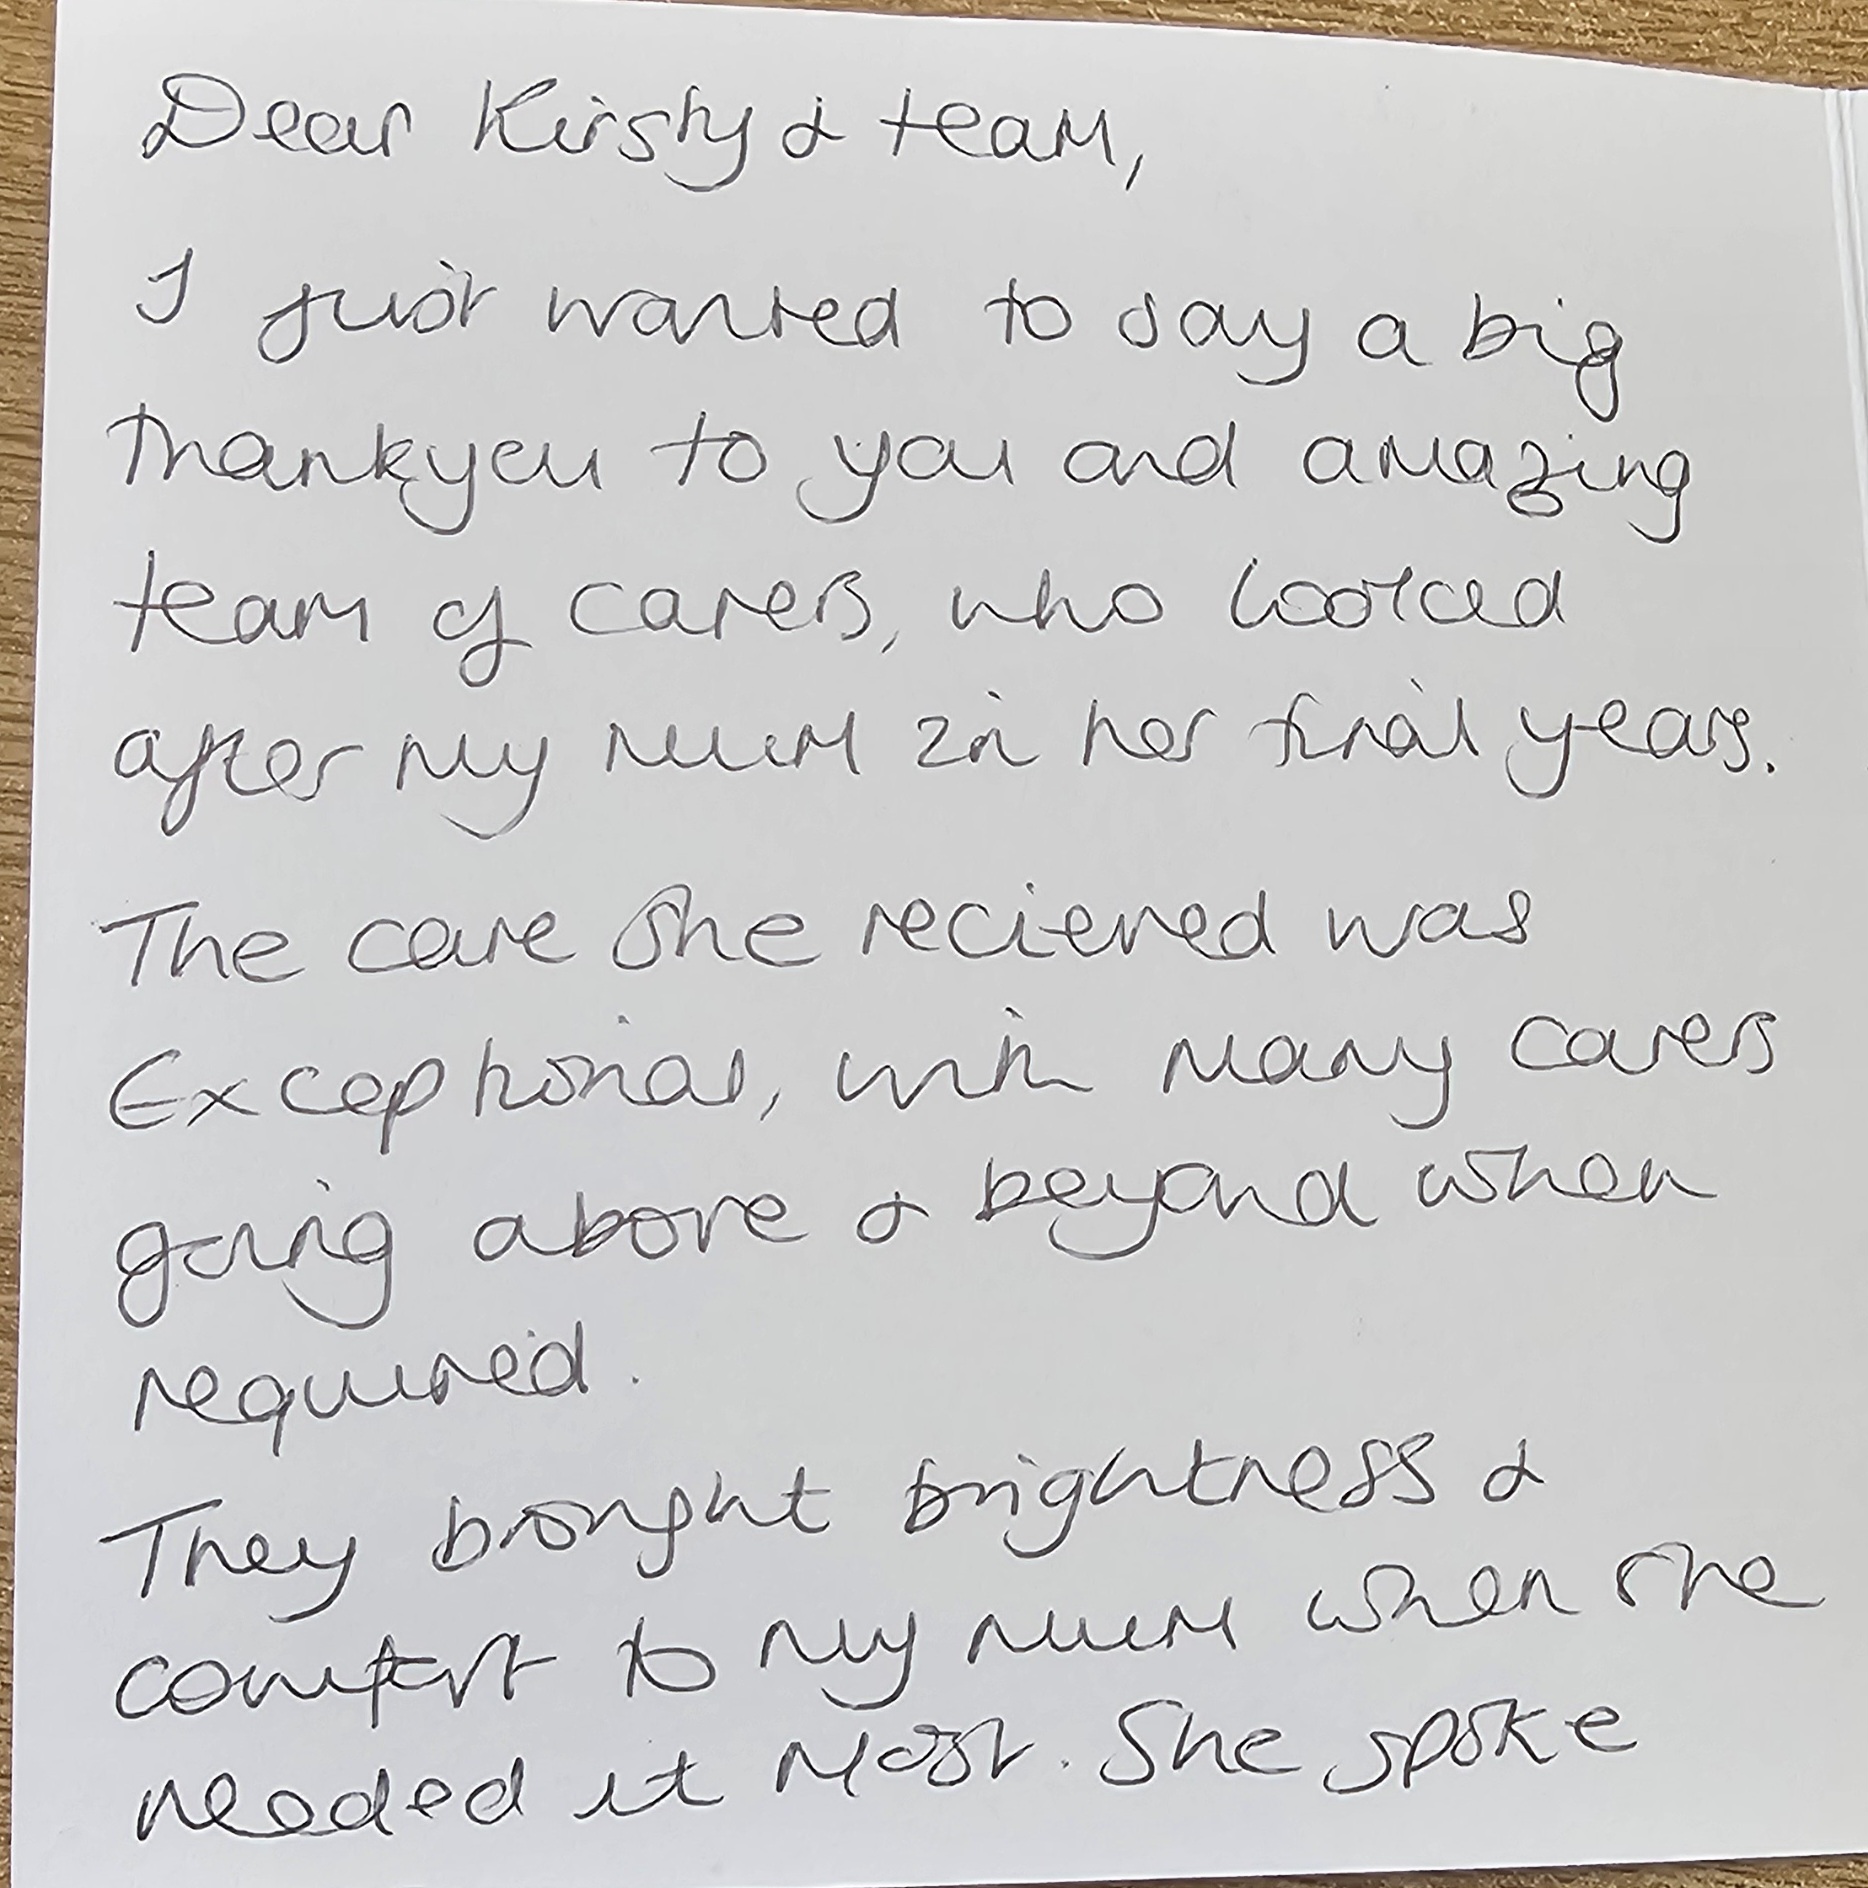 Dear Kirsty & team,
I just wanted to say a big
thankyou to you and amazing
team of carers, who looked
after my mum in her final years.
The care she recieved was
Exceptional, with many carers
going above & beyond when
required.
They brought brightness &
comfort to my mum when she
needed it most. She spoke